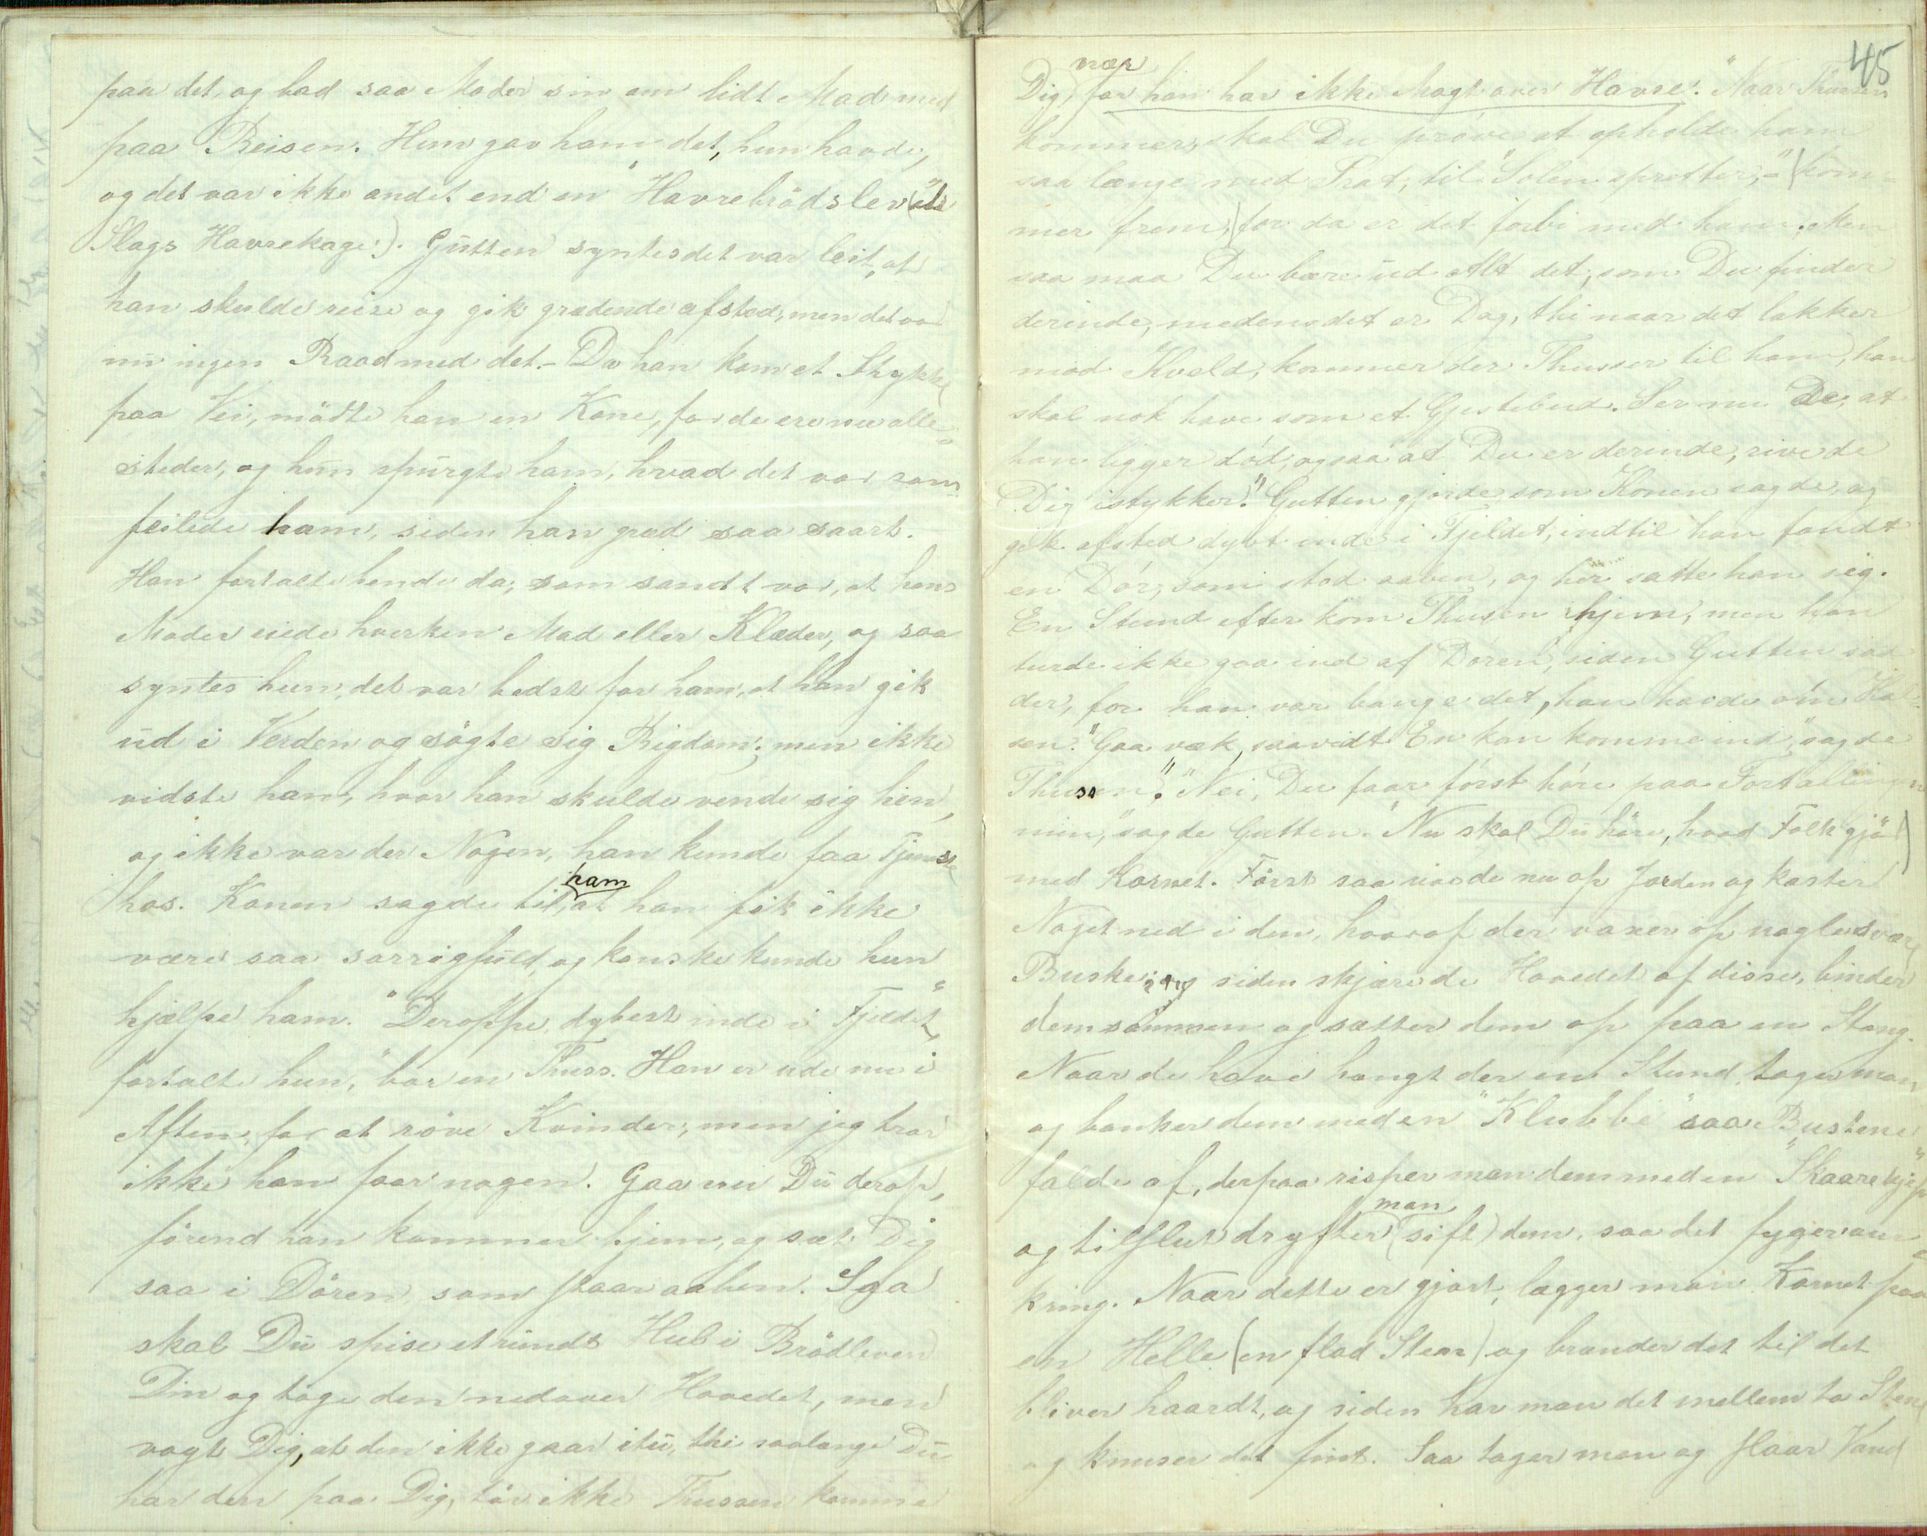 paa det, og bad saa Moder sin om lidt Mad med
paa Reisen. Hun gav ham det, hun havde,
og det var ikke andet end en "Havrebrödslev" (et
Slags Havrekage). Gutten syntes det var leit, at
han skulde reise og gik grædende afsted, men det var
nu ingen Raad med det. - Da han kom et Stykke
paa Vei, mödte han en Kone, for de ere nu alle-
steder, og hun spurgte ham, hvad det var som
feilede ham, siden han græd saa saart.
Han fortalte hende da, som sandt var, at hans
Moder eiede hverken Mad eller Klæder, og saa
syntes hun, det var bedst for ham, at han gik
ud i Verden og sögte sig Rigdom; men ikke
vidste han, hvor han skulde vende sig hen,
og ikke var der Nogen, han kunde faa Tjeneste
hos. Konen sagde til ham at han fik ikke
være saa sorrigfuld, og kanske kunde hun
hjælpe ham. "Deroppe, dybest inde i Fjeldet,"
fortalte hun, "bor en Thuss. Han er ude nu i
Aften, for at röve Kvinder, men jeg tror
ikke han faar nogen. Gaa nu Du derop,
förend han kommer hjem, og sæt Dig
saa i Dören, som staar aaben. Saa
skal Du spise et rundt Hul i Brödleven
Din og tage den nedover Hovedet, men
vogt Dig, at den ikke gaar itu, thi saalænge Du
har den paa Dig, tör ikke Thussen komme
45
Dig nær, for han har ikke Magt over Havre." Naar Thussen
kommer, skal Du pröve at opholde ham
saa længe med Prat, til "Solen spretter," (kom-
mer frem) for da er det forbi med ham. Men
saa maa Du bære ud Alt det, som Du finder
derinde, medens det er Dag, thi naar det lakker
mod Kveld, kommer der Thusser til ham, han
skal nok have som et Gjestebud. Ser nu De, at
han ligger död, og saa at Du er derinde, rive de
Dig istykker." Gutten gjorde, som Konen sagde, og
gik afsted dybt inde i Fjeldet, indtil han fandt
en Dör, som stod aaben, og her satte han sig.
En Stund efter kom Thussen hjem, men han
turde ikke gaa ind af Dören, siden Gutten sad
der, for han var bange det, han havde om Hal-
sen. "Gaa væk, saavidt En kan komme ind," sagde
Thussen. "Nei, Du faar först höre paa Fortællingen
min," sagde Gutten. "Nu skal Du höre, hvad Folk gjör
med Kornet. Först saa vende nu op Jorden og kaster
Noget ned i den, hvoraf der vaxer op nogle svære
Buske; og siden skjære de Hovedet af disse, binder
dem sammen og sætter dem op paa en Stang.
Naar de have hængt der en Stund, tager man
og banker dem med en "Klubbe" saa Bustene
falde af, derpaa risper man dem med en "Skaarekjep"
og tilslut dryfter man (sift) dem, saa det fyger om-
kring. Naar dette er gjort, lægger man Kornet paa
en Helle (en flad Sten) og brænder det til det
bliver haardt, og siden har man det mellem to Stene
og knuser det fint. Saa tager man og slaar Vand